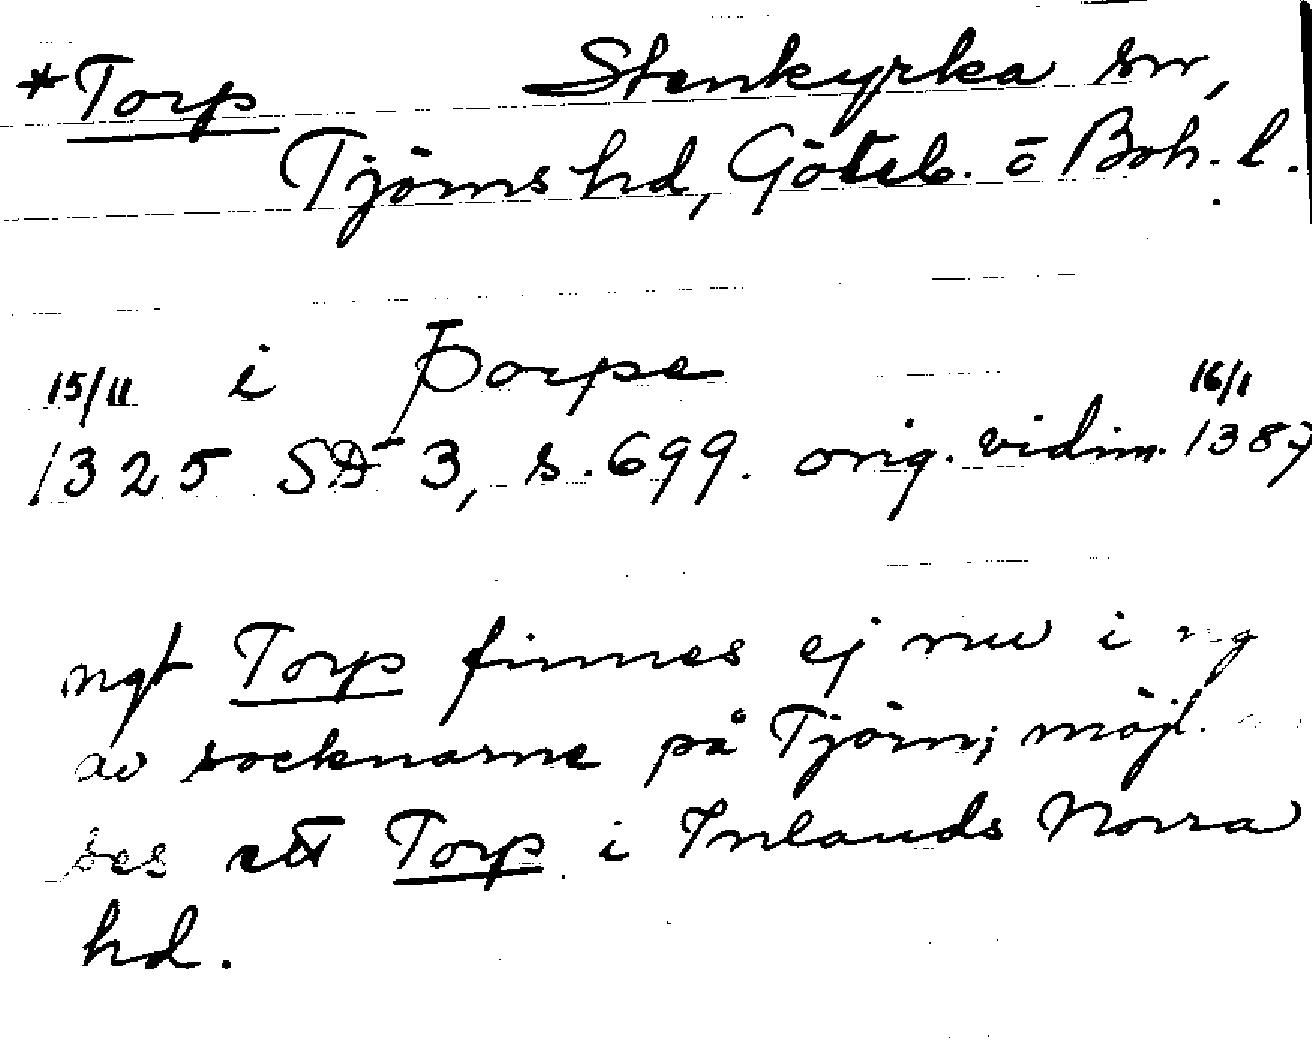 *Torp Stenkyrka sn,
Tjörns hd, Göteb. o Boh. l.
15/11 i Þorpe 16/1
1325 SD 3, s. 699. orig. vidim. 1387
ngt Torp finnes ej nu i ng
av socknarne på Tjörn; möjl.
ses ett Torp i Inlands Norra
hd.